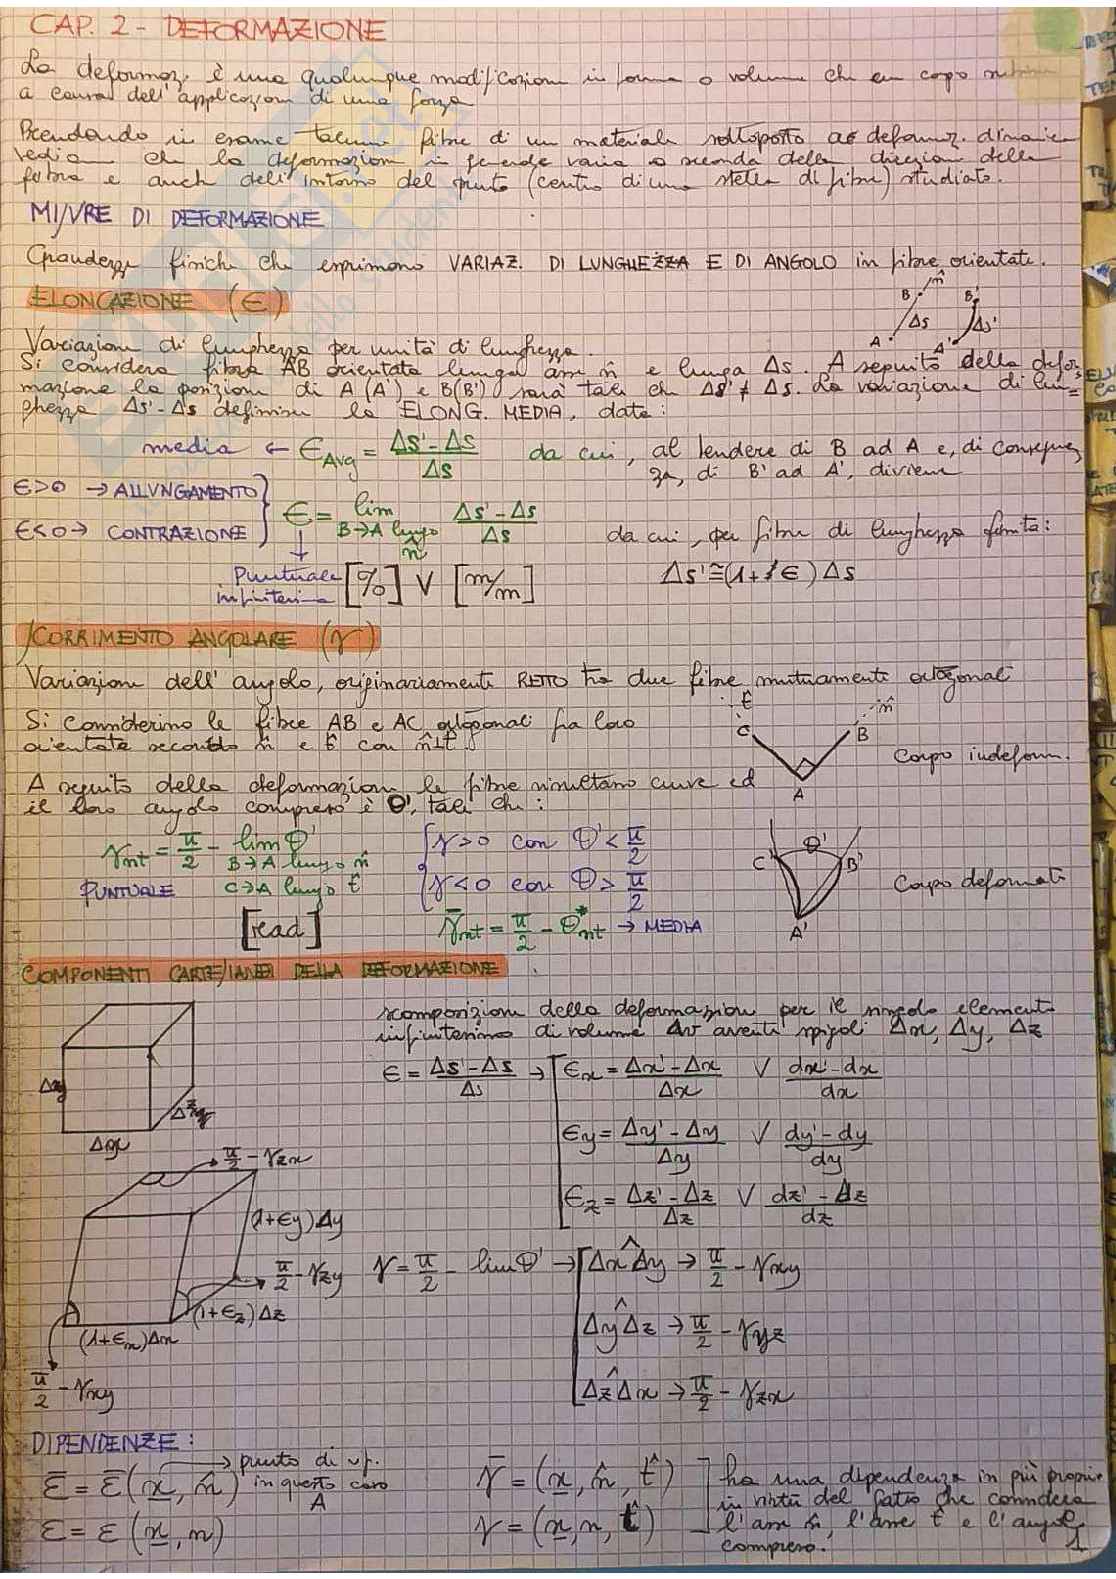 CAP. 2 - DEFORMAZIONE
La deformaz. è una qualunque modificazione in forma o volume che un corpo
a causa dell'applicazione di una forza
Prendendo in esame talune fibre di un materiale sottoposto ad deformaz.
vediamo che la deformazione in generale varia a seconda della direzione della
fibra e anch dell'intorno del punto (centro di una stella di fibre) studiato.
MISURE DI DEFORMAZIONE
Grandezze fisiche che esprimono VARIAZ. DI LUNGHEZZA E DI ANGOLO in fibre orientate.
ELONGAZIONE (ϵ)
B n̂ B'
Δs Δs'
A A'
Variazione di lunghezza per unità di lunghezza.
Si considera fibra AB orientata lungo asse n̂ e lunga Δs. A seguito della defor
mazione la posizione di A (A') e B(B') sarà tale che Δs' ≠ Δs. La variazione di lun=
ghezza Δs'-Δs definisce la ELONG. MEDIA, data:
media ← ϵAvg = Δs'-Δs / Δs da cui, al tendere di B ad A e, di conseguen
za, di B' ad A', diviene
ϵ>0 → ALLUNGAMENTO
ϵ<0 → CONTRAZIONE
ϵ = lim B→A lungo n̂ Δs'-Δs / Δs da cui, per fibre di lunghezza finita:
Puntuale infinitesima [%] V [m/m] Δs' ≅ (1+ϵ) Δs
SCORRIMENTO ANGOLARE (γ)
Variazione dell'angolo, originariamente RETTO tra due fibre mutuamente ortogonali
Si considerino le fibre AB e AC ortogonali fra loro
orientate secondo n̂ e t̂ con n̂⊥t̂
t̂ n̂
C B
A
Corpo indeform.
A seguito della deformazione le fibre risultano curve ed
il loro angolo compreso è θ', tale che:
γnt = π/2 - lim θ' B→A lungo n̂ C→A lungo t̂
PUNTUALE
[rad]
γ>0 con θ' < π/2
γ<0 con θ > π/2
γ̄nt = π/2 - θ*nt → MEDIA
θ'
C' B'
A'
Corpo deformato
COMPONENTI CARTESIANE DELLA DEFORMAZIONE
scomposizione della deformazione per il singolo elemento
infinitesimo di volume Δv avente spigoli Δx, Δy, Δz
Δy
Δz
Δx
ϵ = Δs'-Δs / Δs → ϵx = Δx'-Δx / Δx V dx'-dx / dx
ϵy = Δy'-Δy / Δy V dy'-dy / dy
ϵz = Δz'-Δz / Δz V dz'-dz / dz
π/2 - γzx
(1+ϵy)Δy
π/2 - γzy
(1+ϵz)Δz
(1+ϵx)Δx
π/2 - γxy
γ = π/2 - lim θ' → Δx^Δy → π/2 - γxy
Δy^Δz → π/2 - γyz
Δz^Δx → π/2 - γzx
DIPENDENZE:
ε̄ = ε̄(x, n̂) → punto di
in questo caso A
ε = ε(x, n)
γ̄ = (x, n̂, t̂)
γ = (x, n, t)
ha una dipendenza in più proprio
in virtù del fatto che considera
l'asse n̂, l'asse t̂ e l'angolo
compreso.
1